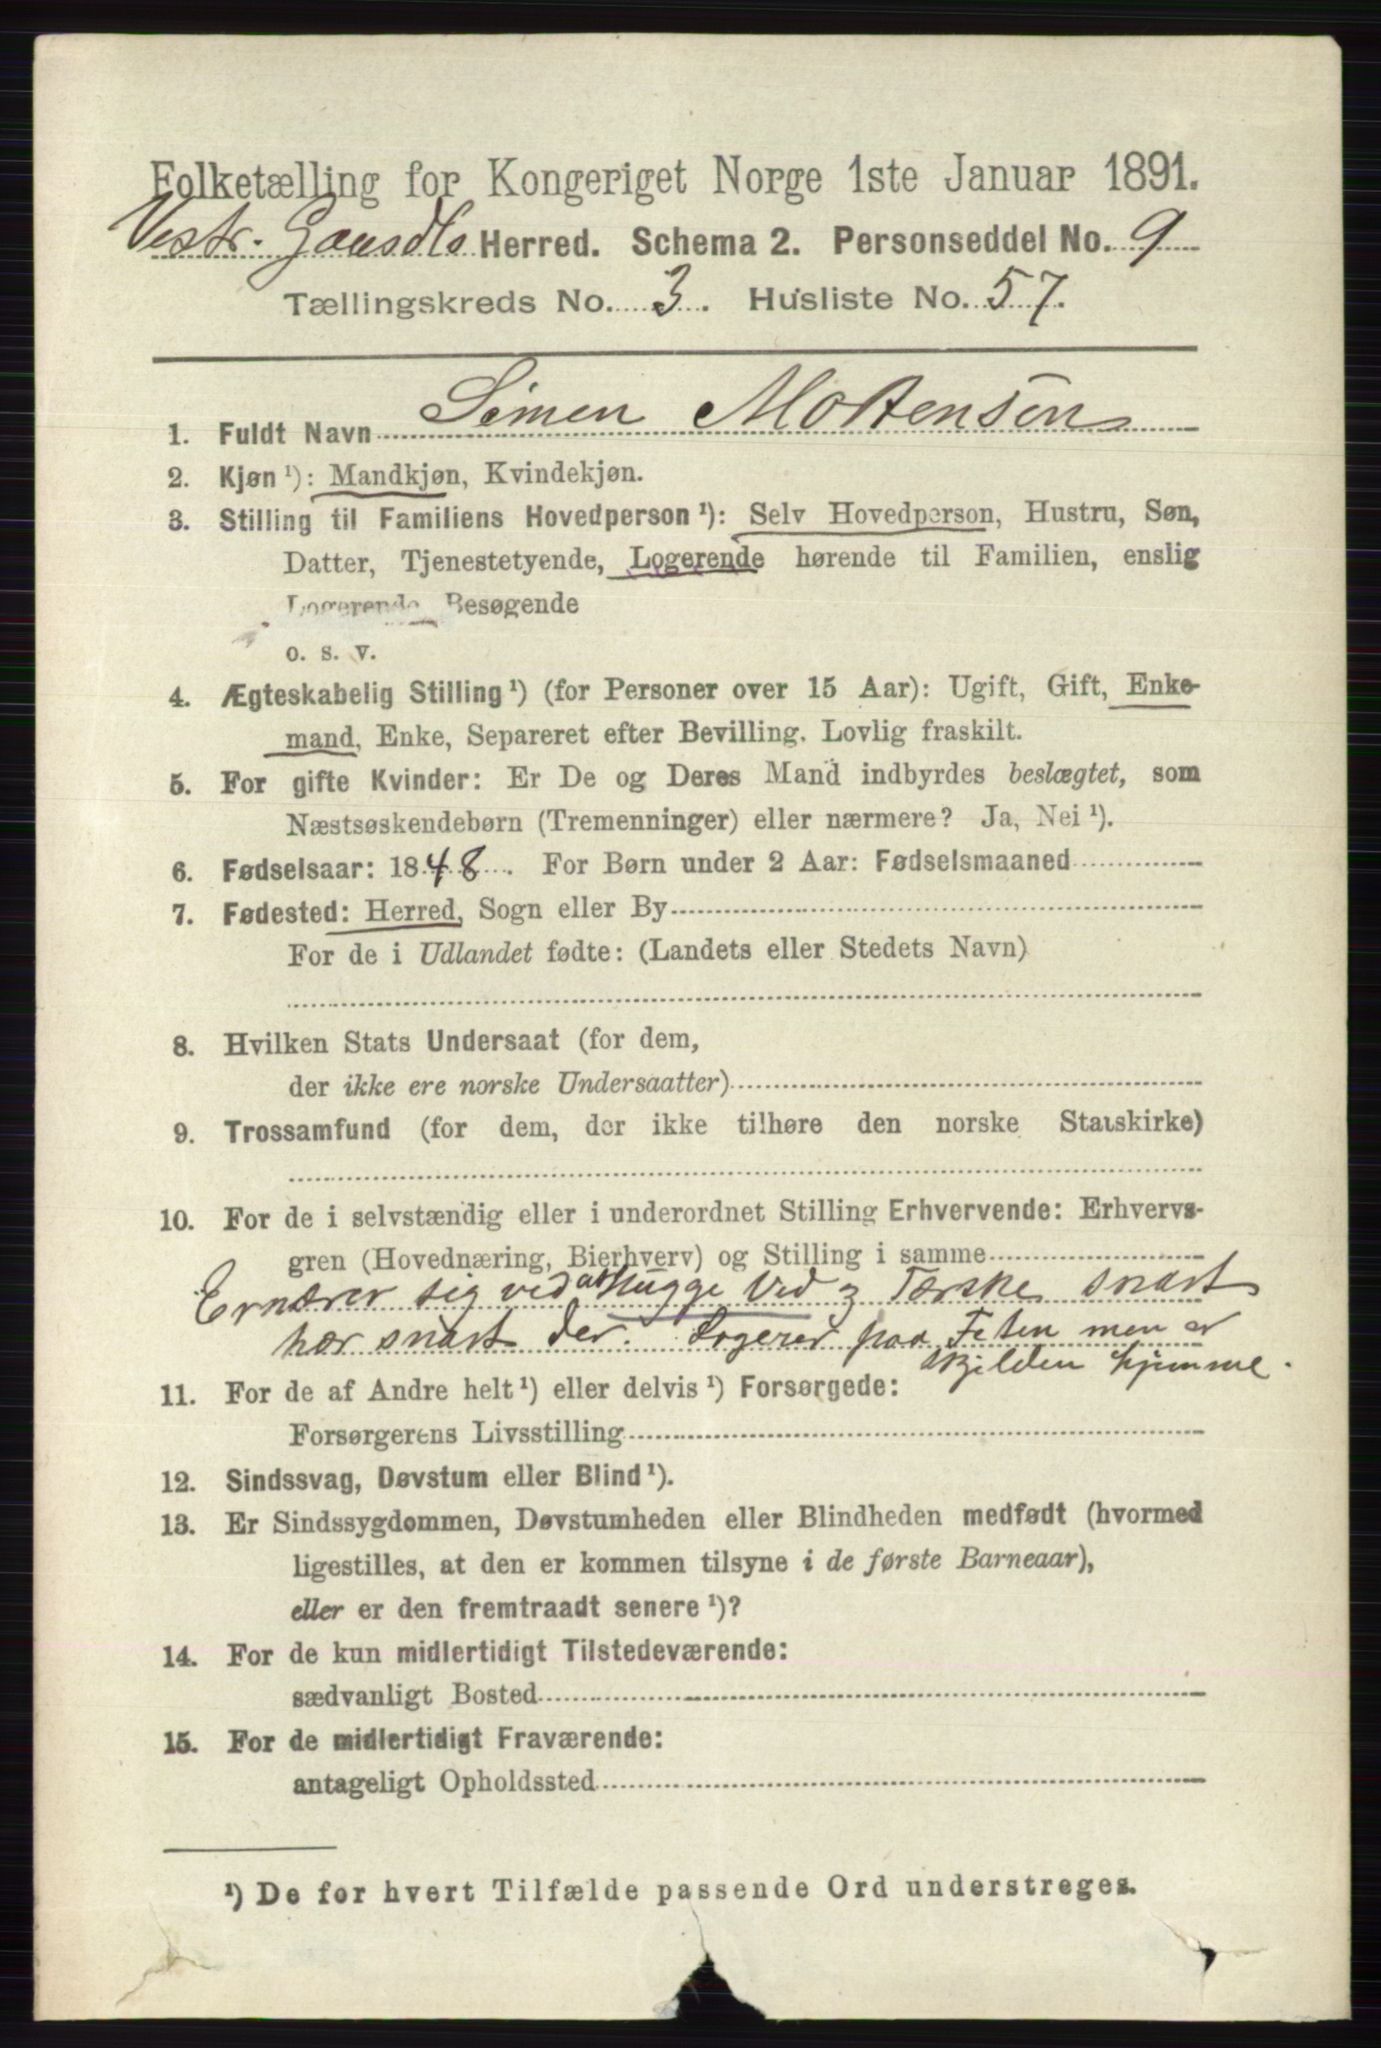 Folketælling for Kongeriget Norge 1ste Januar 1891.
Vestr. Gausdls Herred. Schema 2. Personseddel No. 9
Tællingskreds No. 3. Husliste No. 57.
1. Fuldt Navn Simen Mortensen
2. Kjøn ¹): Mandkjøn, Kvindekjøn.
3. Stilling til Familiens Hovedperson ¹): Selv Hovedperson, Hustru, Søn,
Datter, Tjenestetyende, Logerende hørende til Familien, enslig
Logerende, Besøgende
o. s. v.
4. Ægteskabelig Stilling ¹) (for Personer over 15 Aar): Ugift, Gift, Enke-
mand, Enke, Separeret efter Bevilling. Lovlig fraskilt.
5. For gifte Kvinder: Er De og Deres Mand indbyrdes beslægtet, som
Næstsøskendebørn (Tremenninger) eller nærmere? Ja, Nei ¹).
6. Fødselsaar: 1848. For Børn under 2 Aar: Fødselsmaaned
7. Fødested: Herred, Sogn eller By
For de i Udlandet fødte: (Landets eller Stedets Navn)
8. Hvilken Stats Undersaat (for dem,
der ikke ere norske Undersaatter)
9. Trossamfund (for dem, der ikke tilhøre den norske Statskirke)
10. For de i selvstændig eller i underordnet Stilling Erhvervende: Erhvervs-
gren (Hovednæring, Bierhverv) og Stilling i samme
Ernærer sig ved at Hugge Ved & Tærske snart
her snart der. Logerer paa Feten men er
skjelden hjemme.
11. For de af Andre helt ¹) eller delvis ¹) Forsørgede:
Forsørgerens Livsstilling
12. Sindssvag, Døvstum eller Blind ¹).
13. Er Sindssygdommen, Døvstumheden eller Blindheden medfødt (hvormed
ligestilles, at den er kommen tilsyne i de første Barneaar),
eller er den fremtraadt senere ¹)?
14. For de kun midlertidigt Tilstedeværende:
sædvanligt Bosted
15. For de midlertidigt Fraværende:
antageligt Opholdssted
¹) De for hvert Tilfælde passende Ord understreges.